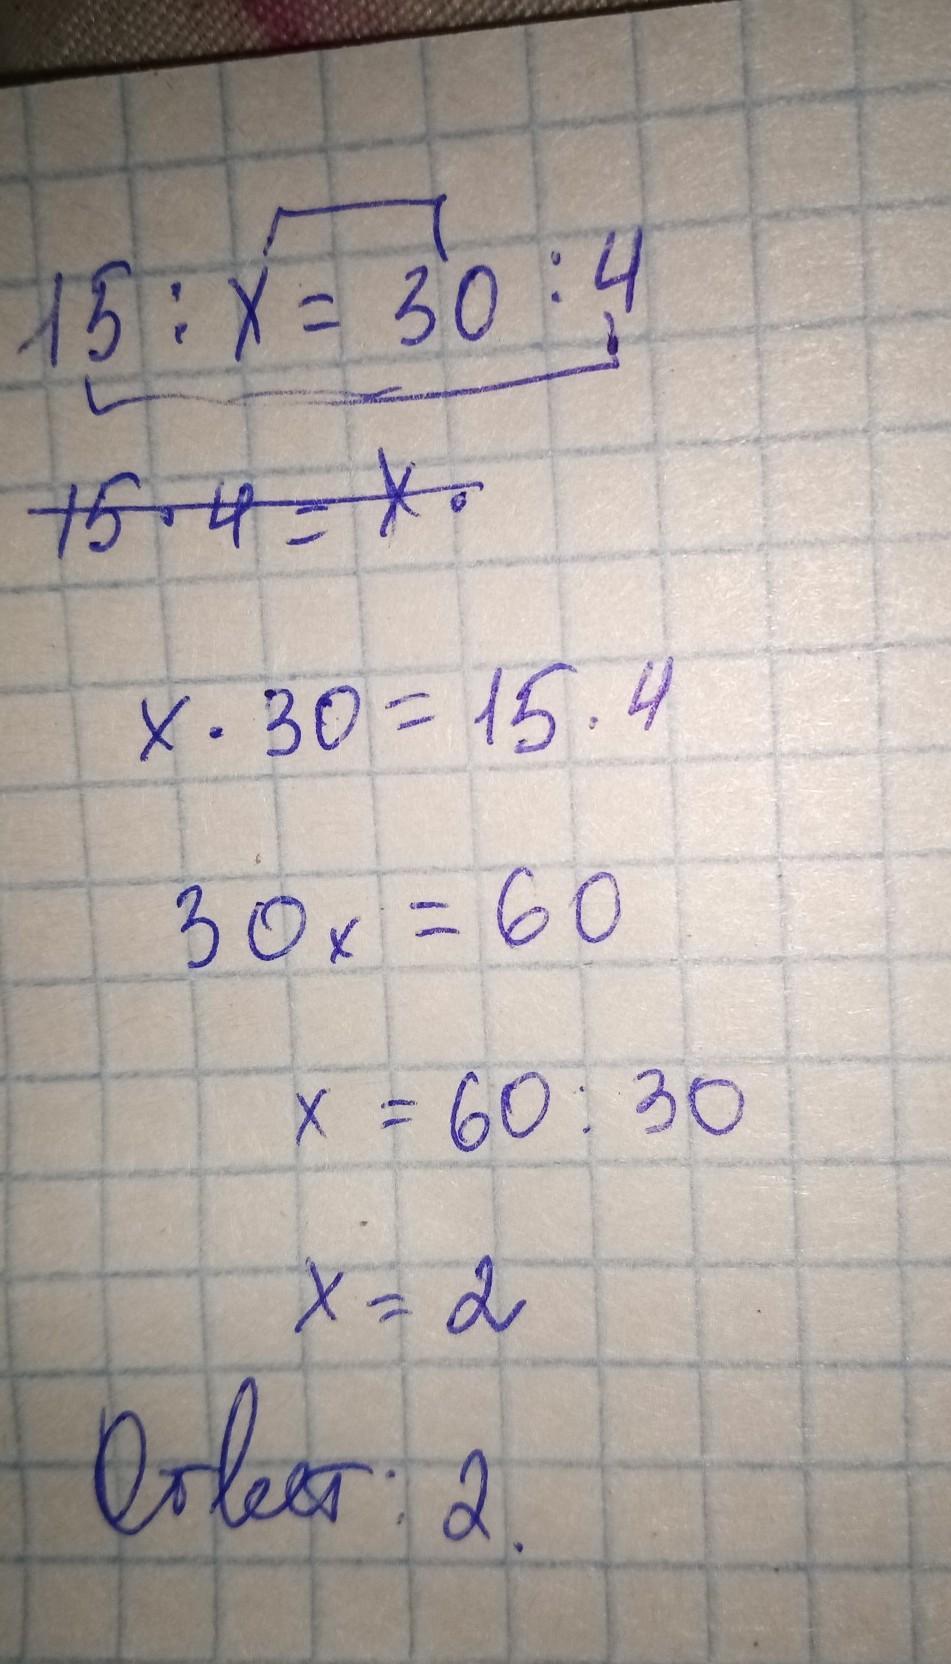 15 : x = 30 : 4
15 · 4 = x ·
x · 30 = 15 · 4
30x = 60
x = 60 : 30
x = 2
Ответ: 2.